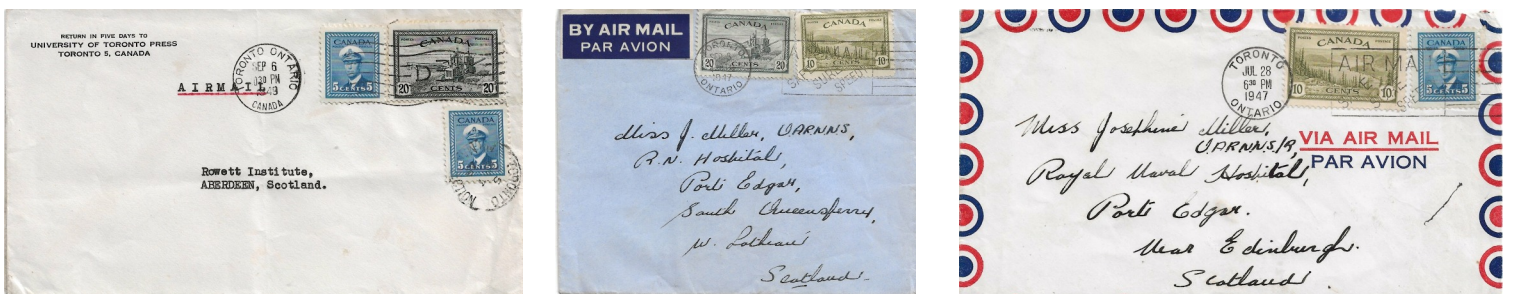 RETURN IN FIVE DAYS TO
UNIVERSITY OF TORONTO PRESS
TORONTO 5, CANADA
AIRMAIL
TORONTO ONTARIO
SEP 6
PM
CANADA
CANADA
5 CENTS 5
CANADA
20 CENTS 20
CANADA
5 CENTS 5
TORONTO
Rowett Institute,
ABERDEEN, Scotland.
BY AIR MAIL
PAR AVION
CANADA
20 CENTS 20
CANADA
10 CENTS 10
TORONTO
1947
ONTARIO
AIR MAIL
SPEED
Miss J. Miller, VARNNS,
R.N. Hospital,
Port Edgar,
South Queensferry,
W. Lothian
Scotland
TORONTO
JUL 28
6 30 PM
1947
ONTARIO
CANADA
10 CENTS 10
CANADA
5 CENTS 5
AIR MA
Miss Josephine Miller,
Royal Naval Hospital,
Port Edgar.
Near Edinburgh.
Scotland
VIA AIR MAIL
PAR AVION